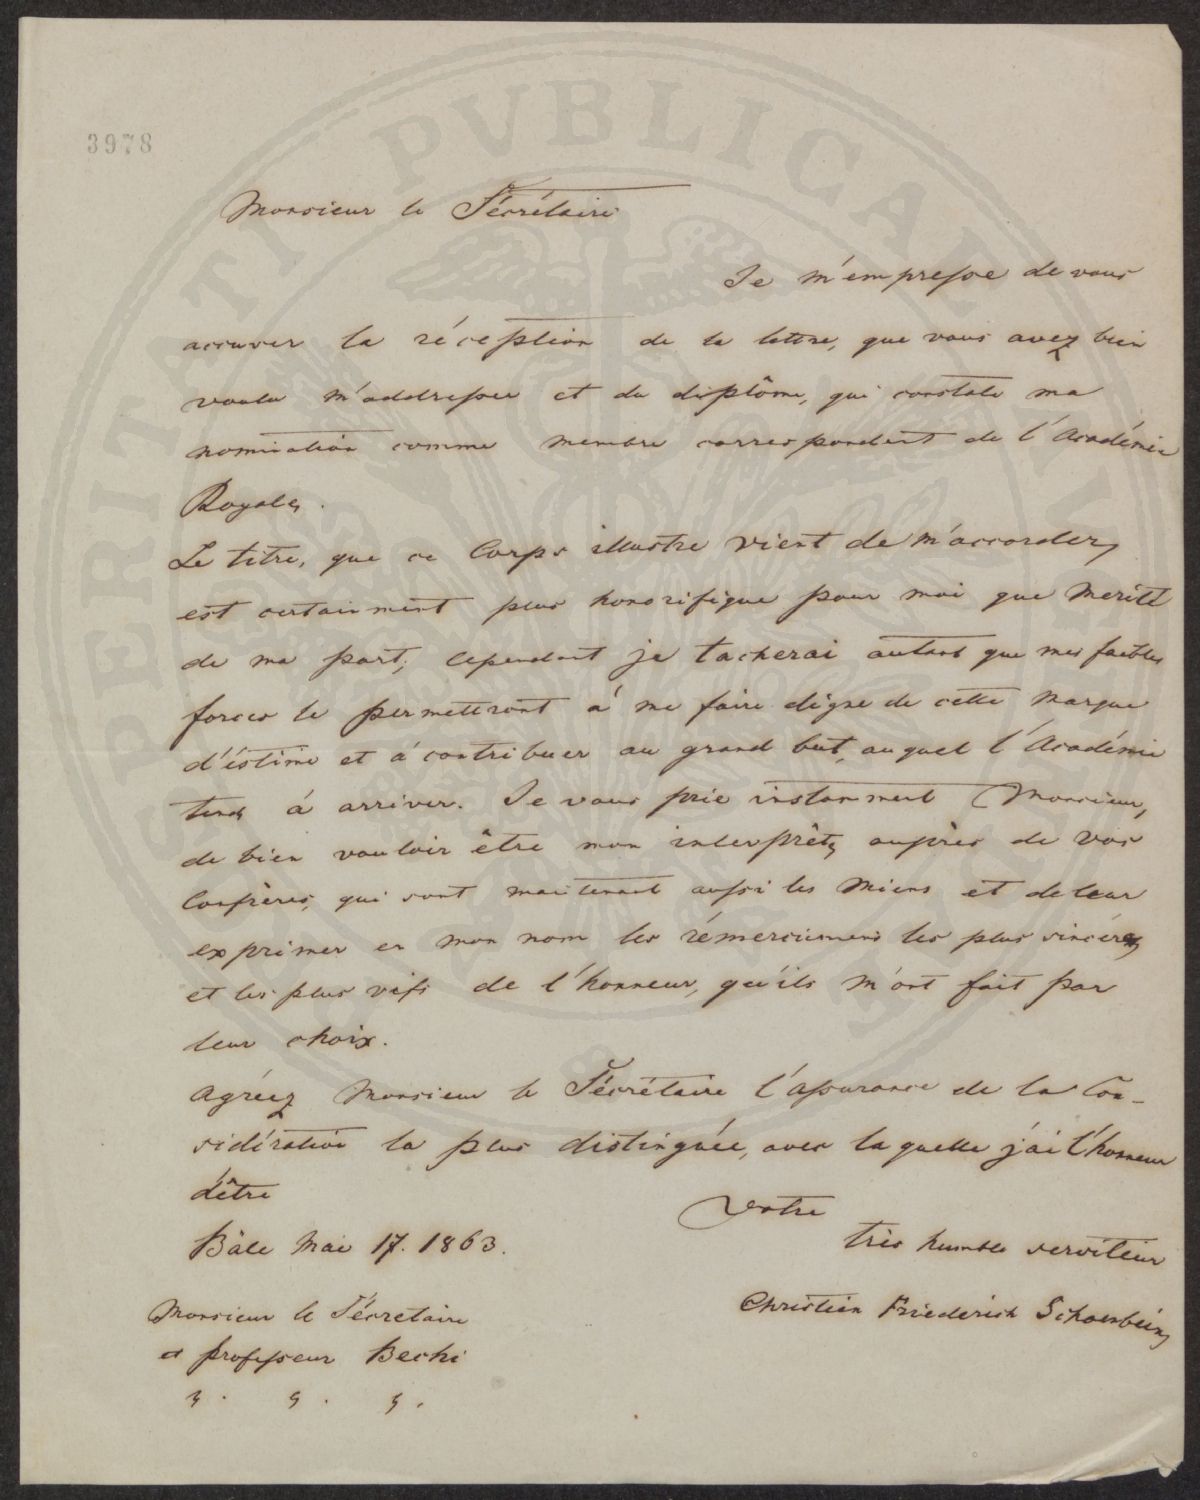 3978
Monsieur le Sécrétaire
Je m'empresse de vous
accuser la réception de la lettre, que vous avez bien
voulu m'addresser et du diplôme, qui constate ma
nomination comme membre correspondent de l'Académie
Royale.
Le titre, que ce Corps illustre vient de m'accorder,
est certainment plus honorifique pour moi que merité
de ma part; cependant je tacherai autant que mes faibles
forces le permettront á me faire digne de cette marque
d'éstime et á contribuer au grand but, auquel l'Académie
tend á arriver. Je vous prie instamment Monsieur,
de bien vouloir être mon interprête auprès de vos
Confrères, qui sont maintenant aussi les miens et de leur
exprimer en mon nom les rémerciemens les plus sincères
et les plus vifs de l'honneur, qu'ils m'ont fait par
leur choix.
Agréez Monsieur le Sécrétaire l'assurance de la Con-
sidération la plus distinguée, avec laquelle j'ai l'honneur
d'être
Votre
Bâle Mai 17. 1863.
très humble serviteur
Christian Friederich Schoenbein,
Monsieur le Sécretaire
et professeur Bechi
SPERITATI PVBLICAE